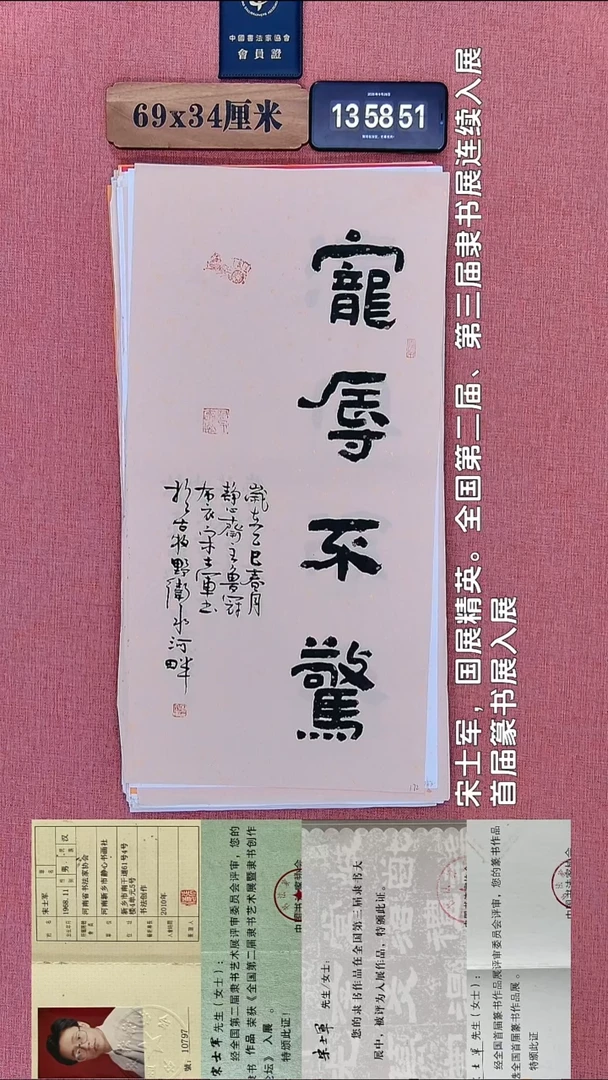 中國書法家協會
會員證
69x34厘米
13 58 51
寵辱不驚
歲在乙巳春月
靜心齋主魯冠
布衣宋士軍書
於古牧野衛水河畔
宋士军，国展精英。全国第二届、第三届隶书展连续入展
首届篆书展入展
宋士军
男
汉
1968.11
河南省书法家协会
河南新乡市静心书画社
新乡市南干道61号4号
楼4单元5号
书法创作
2010年
號: 10797
宋士军 先生(女士):
经全国第二届隶书艺术展评审委员会评审，您的
隶书 作品 荣获《全国第二届隶书艺术展暨隶书创作
论坛》 入展 。
特颁此证!
宋士军 先生/女士:
您的隶书作品在全国第三届隶书大
展中，被评为入展作品，特颁此证。
士军 先生(女士):
经全国首届篆书作品展评审委员会评审，您的篆书作品
选全国首届篆书作品展。
特颁此证